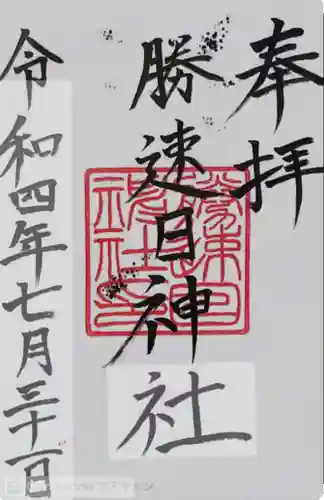 奉拝
勝速日神社
令和四年七月三十一日